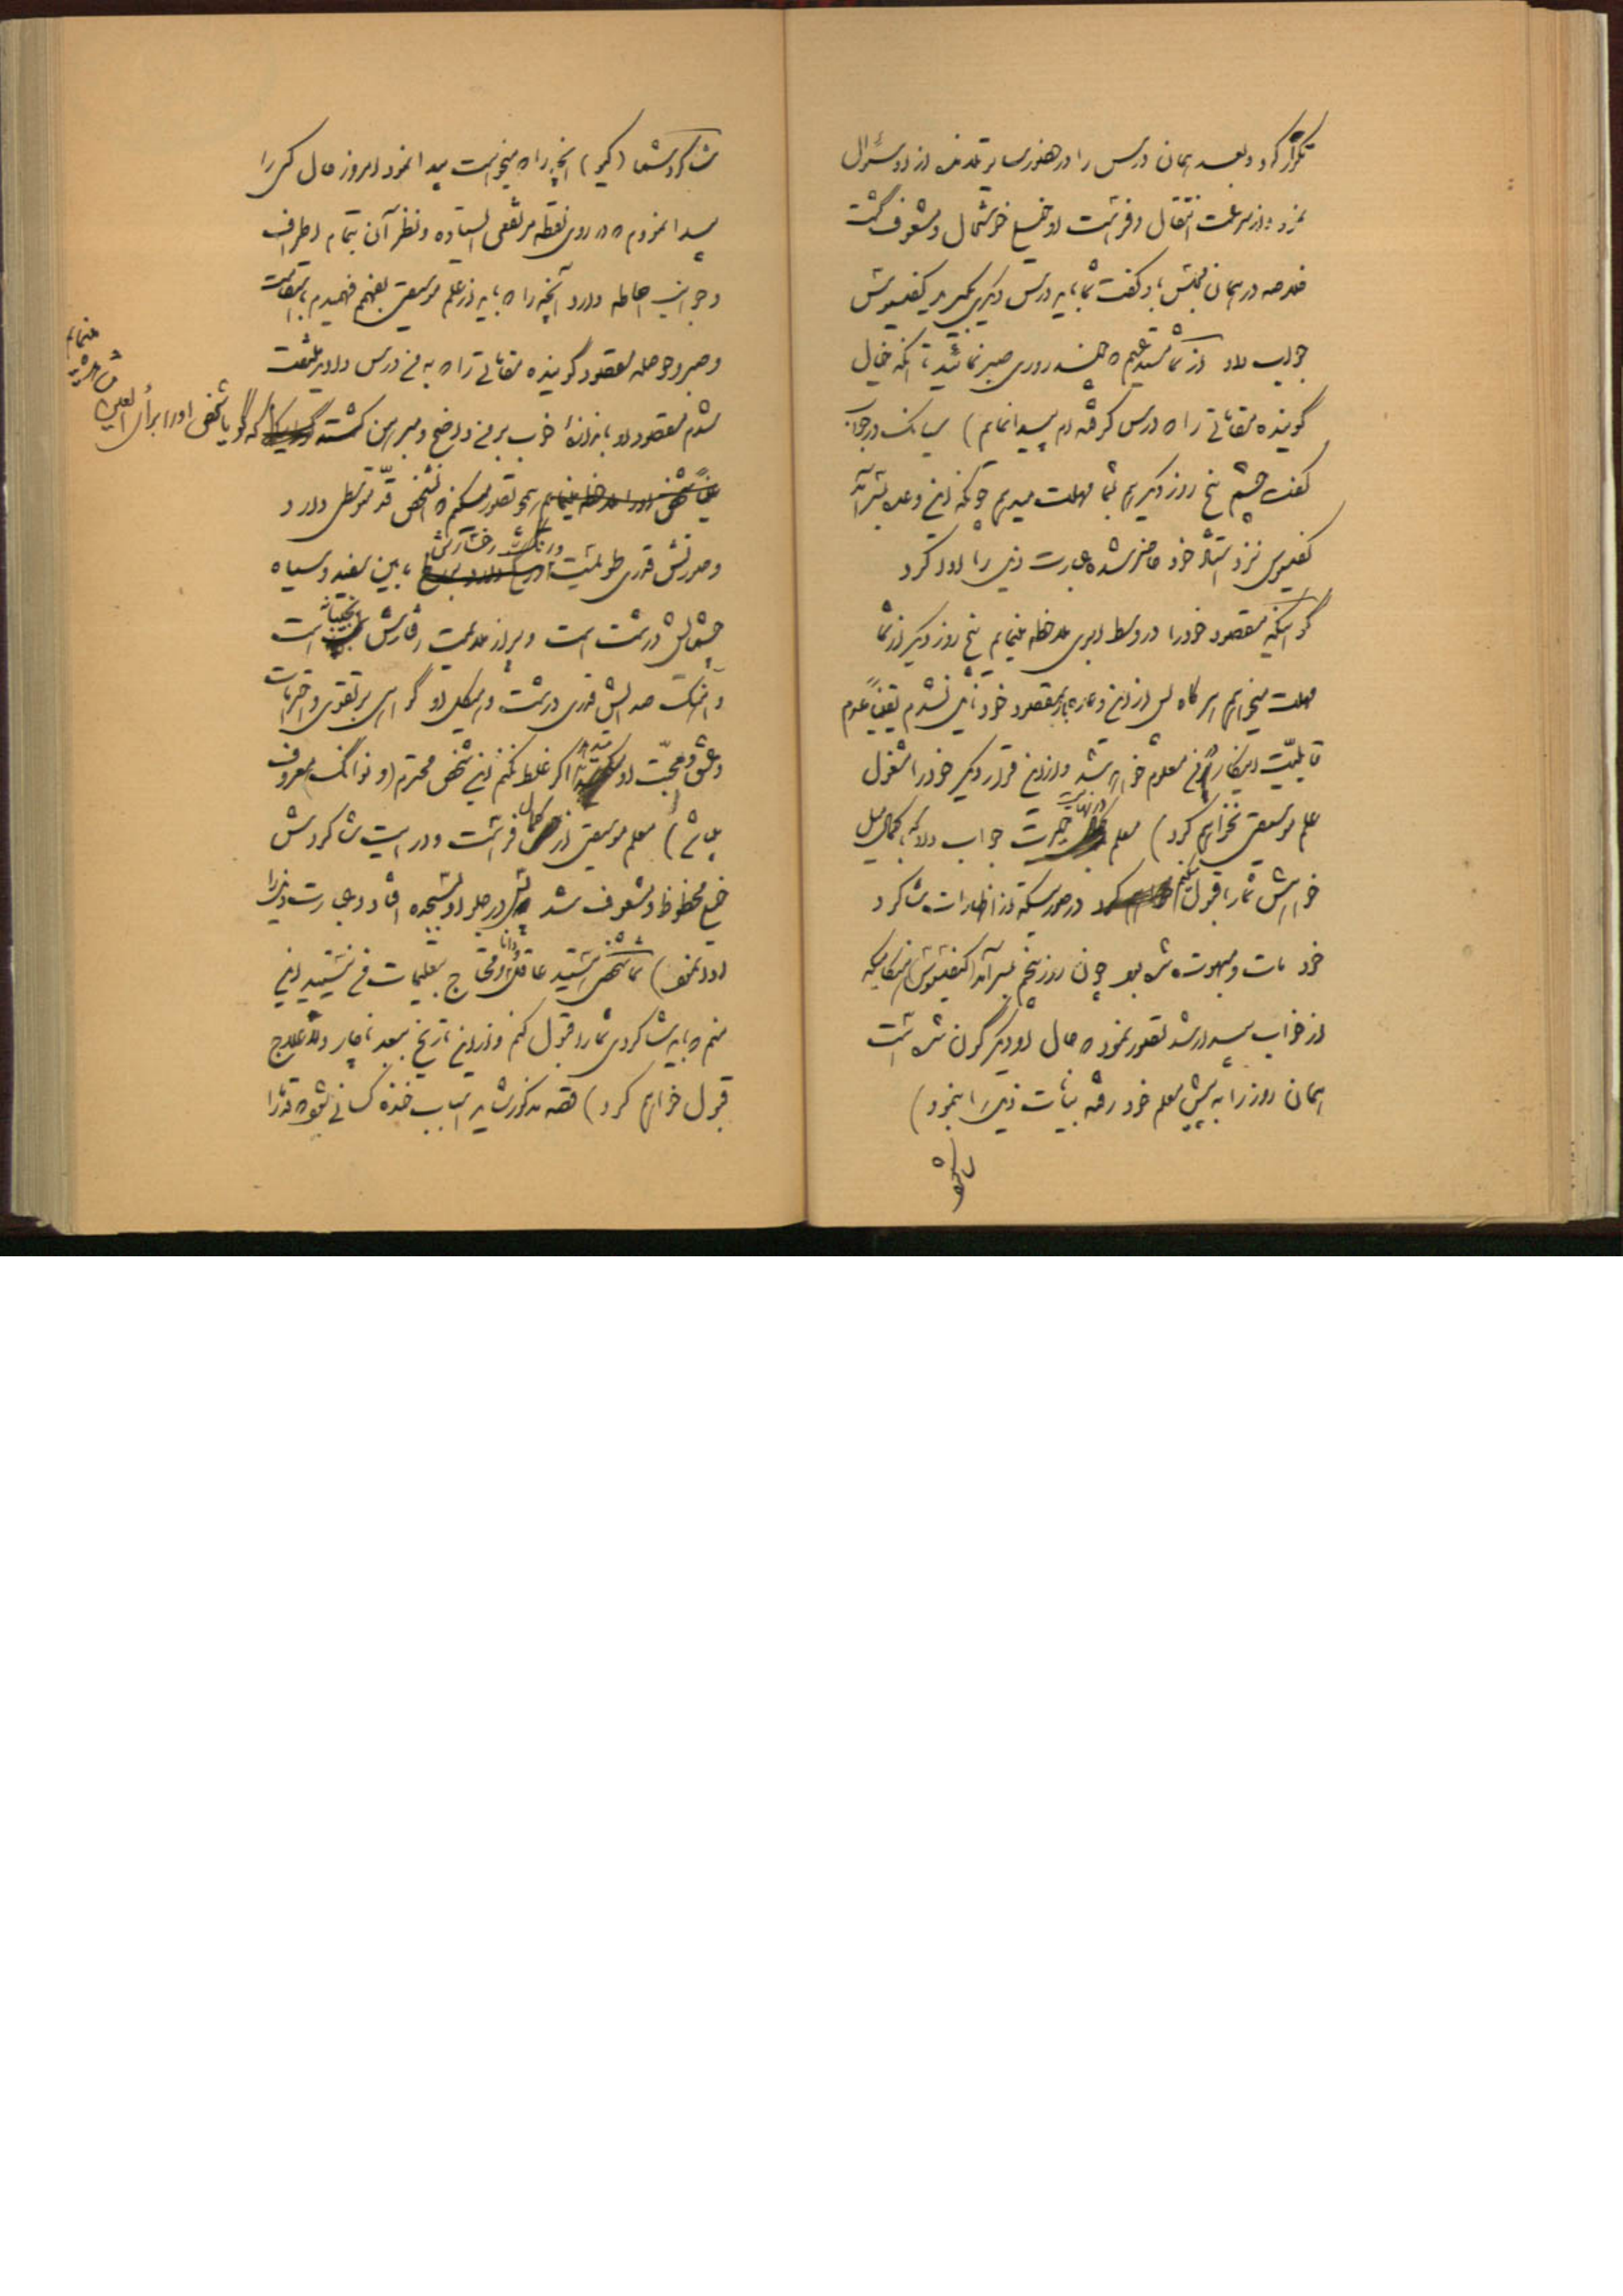 تکرار کرد و بعد همان درس را در حضور سایر تلامذه از او سؤال
نمود و از سرعت انتقال و فراست او خیلی خوشحال و مشعوف گشت
خلاصه در همان مجلس باو گفت شما باید درس دیگری بگیرید کنفسیوس
جواب داد از شما مستدعیم که چند روزی صبر نمائید تا آنکه خیال
گوینده مقاماتی را که درس گرفته ام پیدا نمایم) سیانک در جواب
گفت چشم پنج روز دیگر هم بشما مهلت میدهم چونکه این وعده بسر آمد
کنفسیوس نزد استاد خود حاضر شده عبارت ذیل را ادا کرد
گو اینکه مقصود خود را در وسط ابری ملاحظه مینمایم پنج روز دیگر از شما
مهلت میخواهم هر گاه پس از این وعده بمقصود خود نایل نشدم یقیناً عدم
قابلیت اینکار بر من معلوم خواهد شد و از این قرار دیگر خود را مشغول
علم موسیقی نخواهم کرد) معلم در نهایت حیرت جواب داد که بکمال میل
خواهش شما را قبول میکنم در صورتیکه از اظهارات شاگرد
خود مات و مبهوت شده بود چون روز پنجم بسر آمد کنفسیوس هنگامیکه
از خواب بیدار شد تصور نمود که حال او دیگر گون شده است
همان روز را به پیش معلم خود رفته بیانات ذیل را بنمود)
شاگرد
شاگرد شما (کیو) آنچه را که میخواست پیدا نمود امروز حال کسی را
پیدا نمودم که در روی نقطه مرتفعی ایستاده و نظر آن بتمام اطراف
و جوانب احاطه دارد آنچه را که باید از علم موسیقی بفهمم فهمیدم باستقامت
و صبر و حوصله مقصود گوینده مقاماتی را که به من درس دادید ملتفت
شدم مقصود او باندازهٔ خوب بر من واضح و مبرهن گشته که گویا شخص او را برأی العین
مشاهده
مینمایم
همچو تصور میکنم که آن شخص قد متوسطی دارد
و صورتش قدری طولیست و رنگ رخسارش ما بین سفید و سیاه
چشمهایش درشت است و پر از ملاحت رفتارش نجیبانه است
و آهنگ صدایش قدری درشت و هیکل او گواهی بر تقوی و احترامات
و عشق و محبت او میدهد اگر غلط نکنم این شخص محترم (ونوانگ) معروف
میباشد) معلم موسیقی از کمال فراست و درایت شاگردش
خیلی محظوظ و مشعوف شد در جلو او بسجده افتاد و عبارت ذیل را
ادا نمود) شما شخصی هستید عاقل و دانا و محتاج بتعلیمات من نیستید این
منم که باید شاگردی شما را قبول کنم و از این تاریخ ببعد ناچار و لاعلاج
قبول خواهم کرد) قصه مذکور شاید اسباب خنده کسانی بشود که قوه را